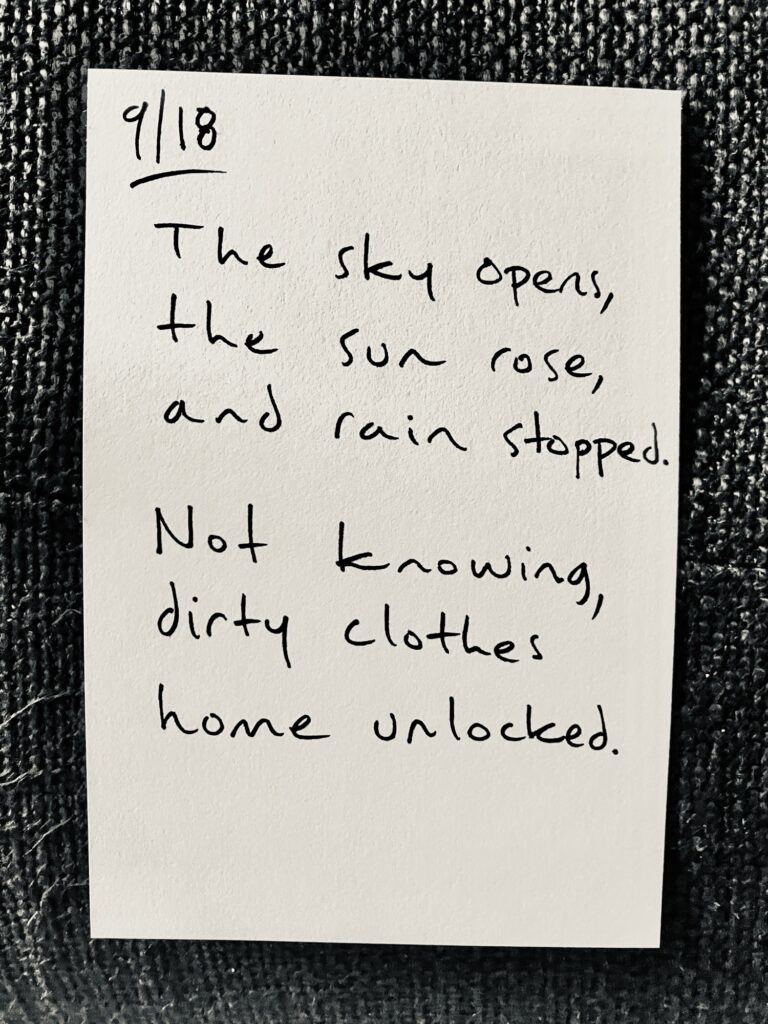 9/18
The sky opens,
the sun rose,
and rain stopped.
Not knowing,
dirty clothes
home unlocked.